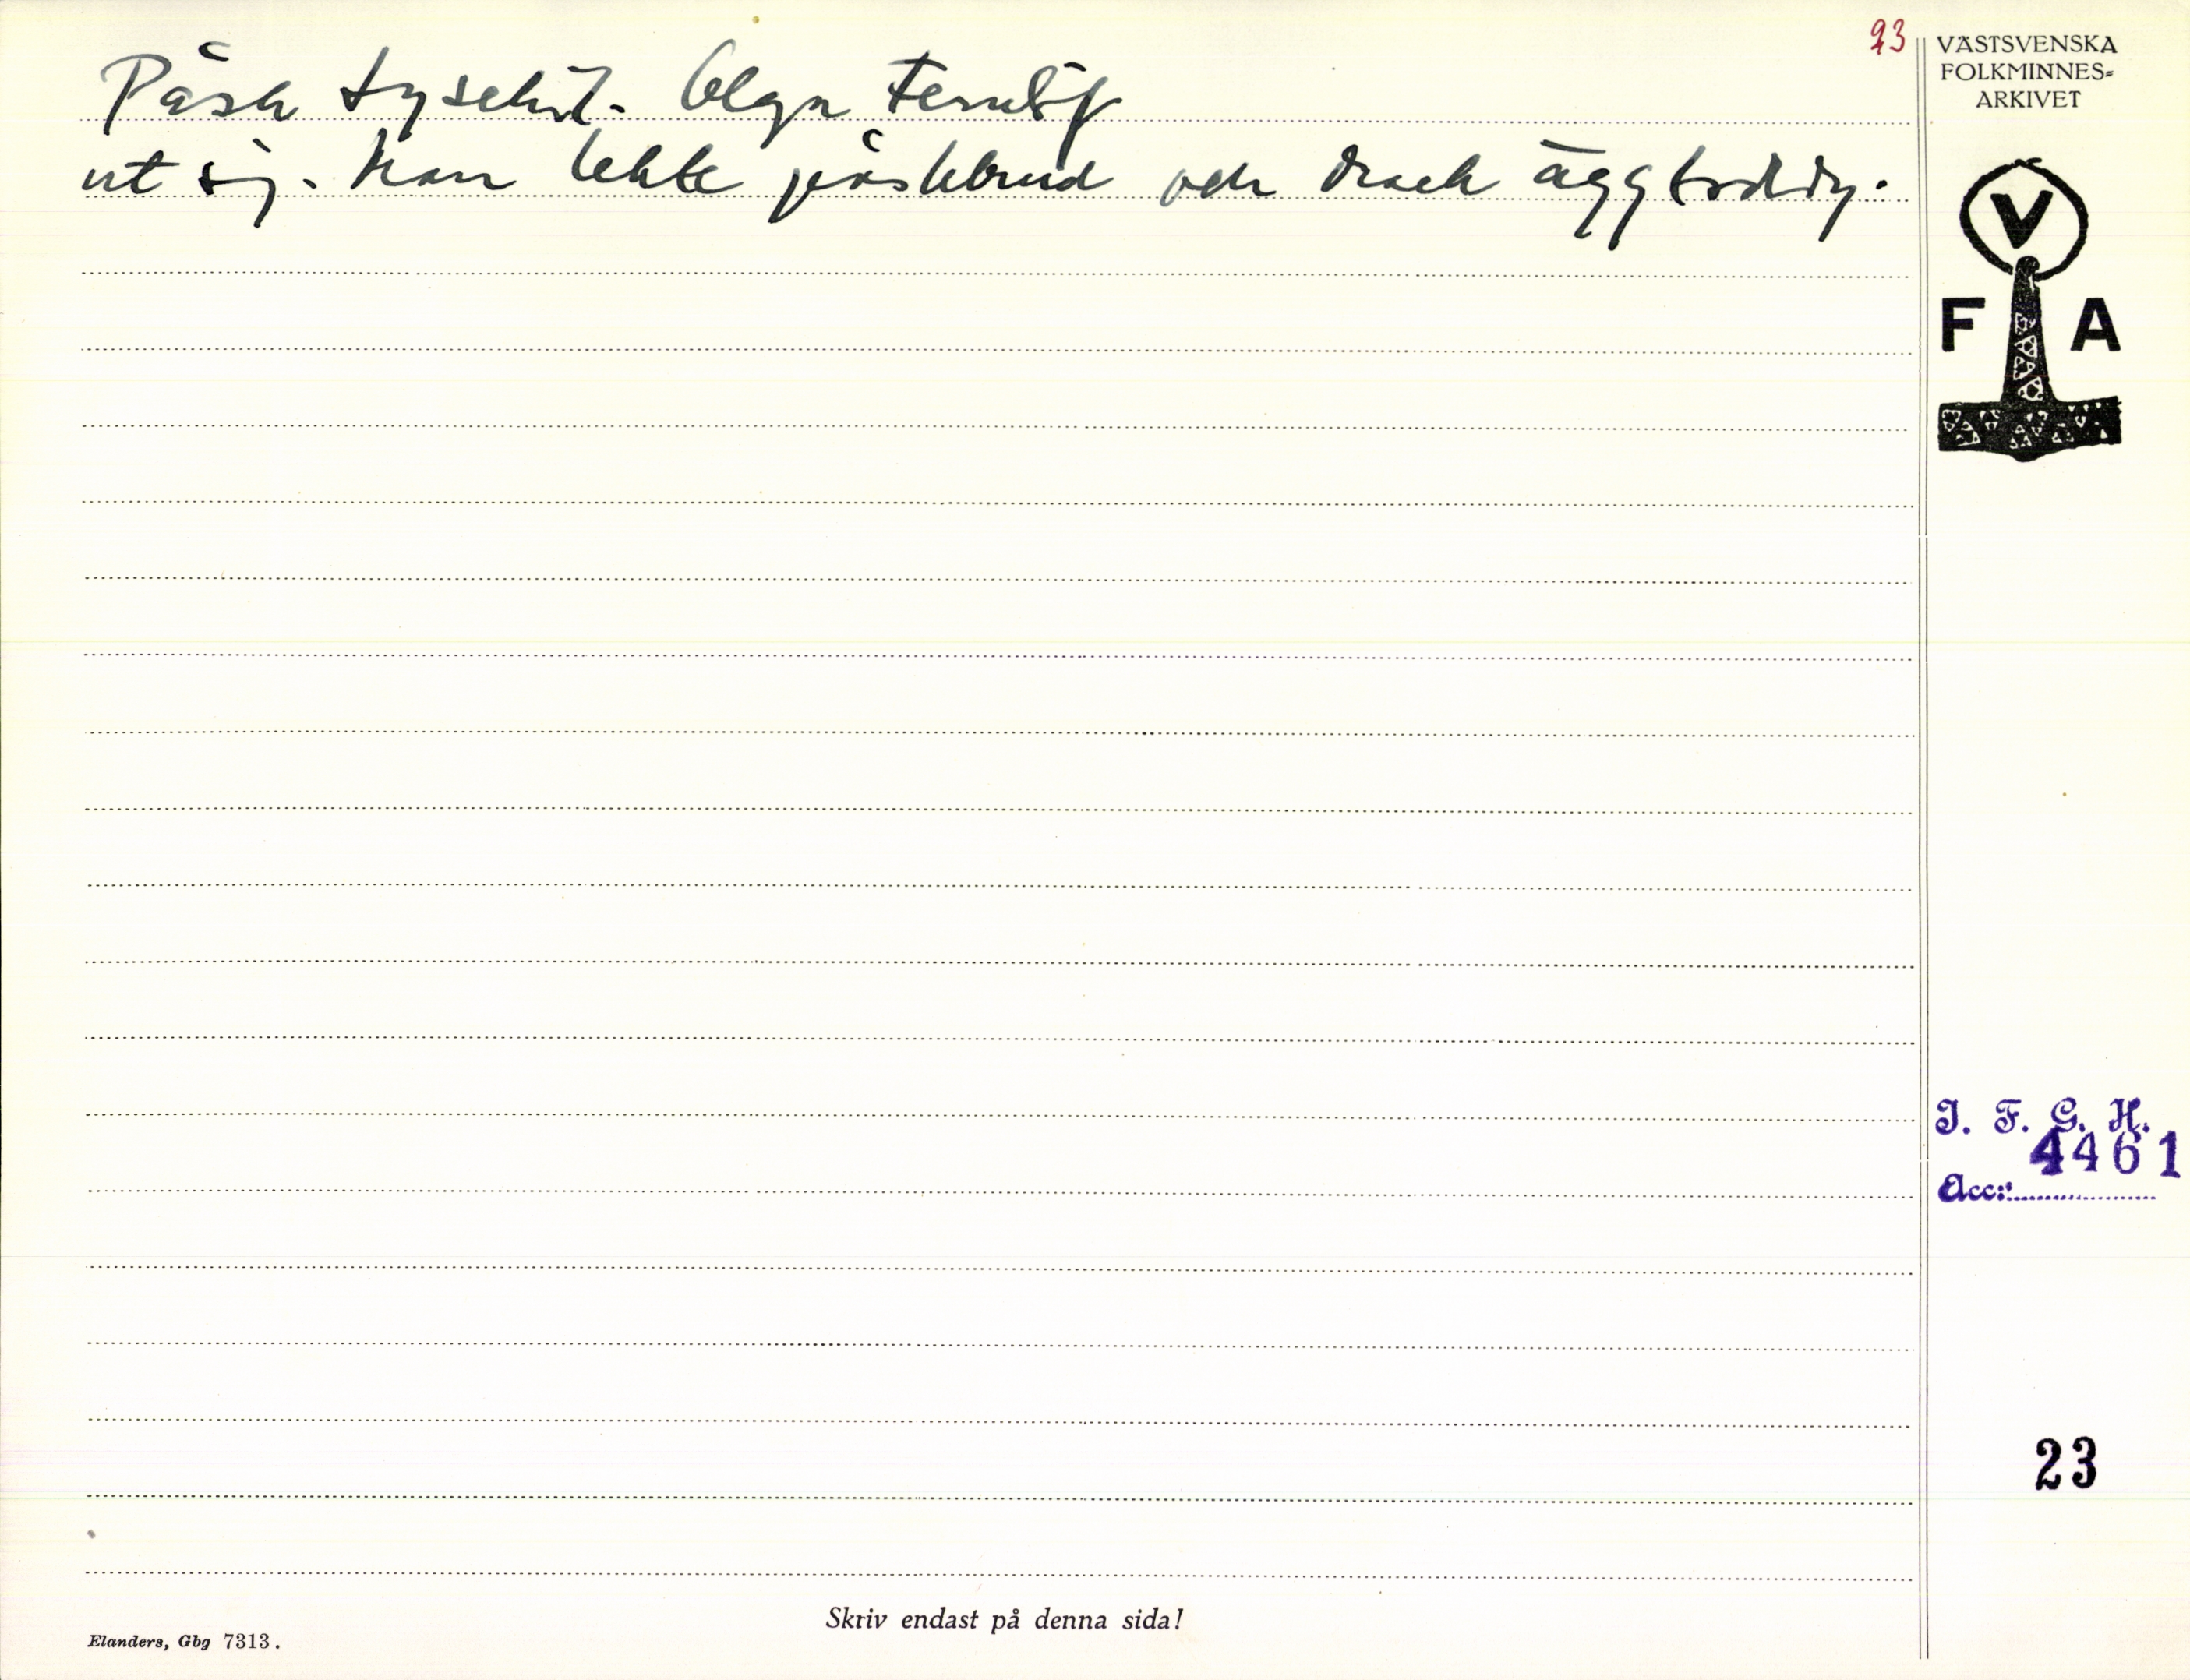 23
VÄSTSVENSKA
FOLKMINNES=
ARKIVET
Påsk Lysekil. Olga
ut sig. Man lekte påskbrud och drack äggtoddy.
V
F A
I. F. G. H.
4461
Acc:
23
Skriv endast på denna sida!
Elanders, Gbg 7313.